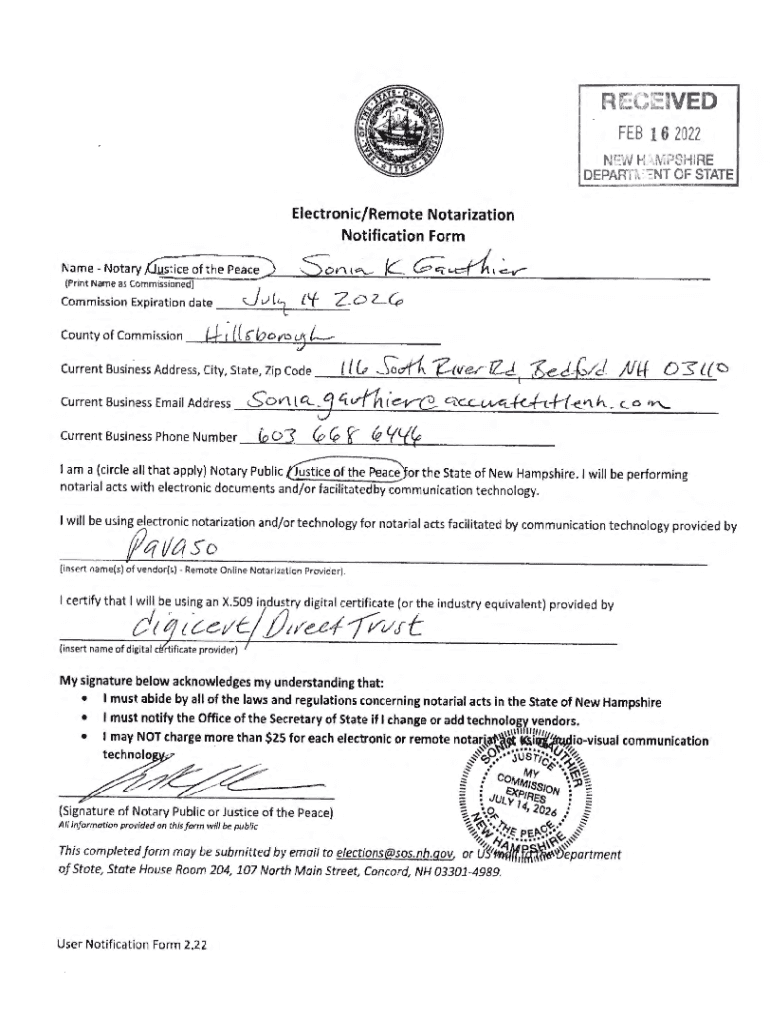 SEAL · OF · THE · STATE · OF · NEW HAMPSHIRE · 1776
RECEIVED
FEB 16 2022
NEW HAMPSHIRE
DEPARTMENT OF STATE
Electronic/Remote Notarization
Notification Form
Name - Notary / Justice of the Peace Sonia K Gauthier
(Print Name as Commissioned)
Commission Expiration date July 14 2026
County of Commission Hillsborough
Current Business Address, City, State, Zip Code 116 South River Rd, Bedford NH 03110
Current Business Email Address Sonia.gauthier@accuratetitlenh.com
Current Business Phone Number 603 668 6446
I am a (circle all that apply) Notary Public / Justice of the Peace for the State of New Hampshire. I will be performing
notarial acts with electronic documents and/or facilitatedby communication technology.
I will be using electronic notarization and/or technology for notarial acts facilitated by communication technology provided by
Pavaso
(insert name(s) of vendor(s) - Remote Online Notarization Provider).
I certify that I will be using an X.509 industry digital certificate (or the industry equivalent) provided by
digicert/Direct Trust
(insert name of digital certificate provider)
My signature below acknowledges my understanding that:
• I must abide by all of the laws and regulations concerning notarial acts in the State of New Hampshire
• I must notify the Office of the Secretary of State if I change or add technology vendors.
• I may NOT charge more than $25 for each electronic or remote notarial act using audio-visual communication
technology.
SONIA GAUTHIER
JUSTICE
MY
COMMISSION
EXPIRES
JULY 14, 2026
OF THE PEACE
NEW HAMPSHIRE
(Signature of Notary Public or Justice of the Peace)
All information provided on this form will be public
This completed form may be submitted by email to elections@sos.nh.gov, or US mail to the Department
of State, State House Room 204, 107 North Main Street, Concord, NH 03301-4989.
User Notification Form 2.22